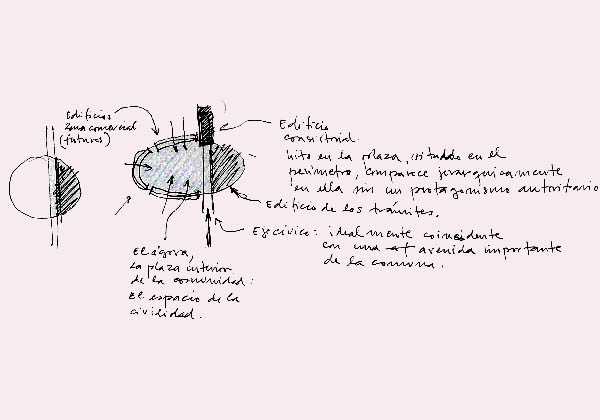 Edificios
zona comercial
(futuros)
Edificio
consistorial
hito en la plaza, situado en el
perímetro, comparece jerárquicamente
en ella sin un protagonismo autoritario
Edificio de los trámites.
Eje cívico: idealmente coincidente
con una avenida importante
de la comuna.
El ágora,
La plaza interior
de la comunidad:
El espacio de la
civilidad.